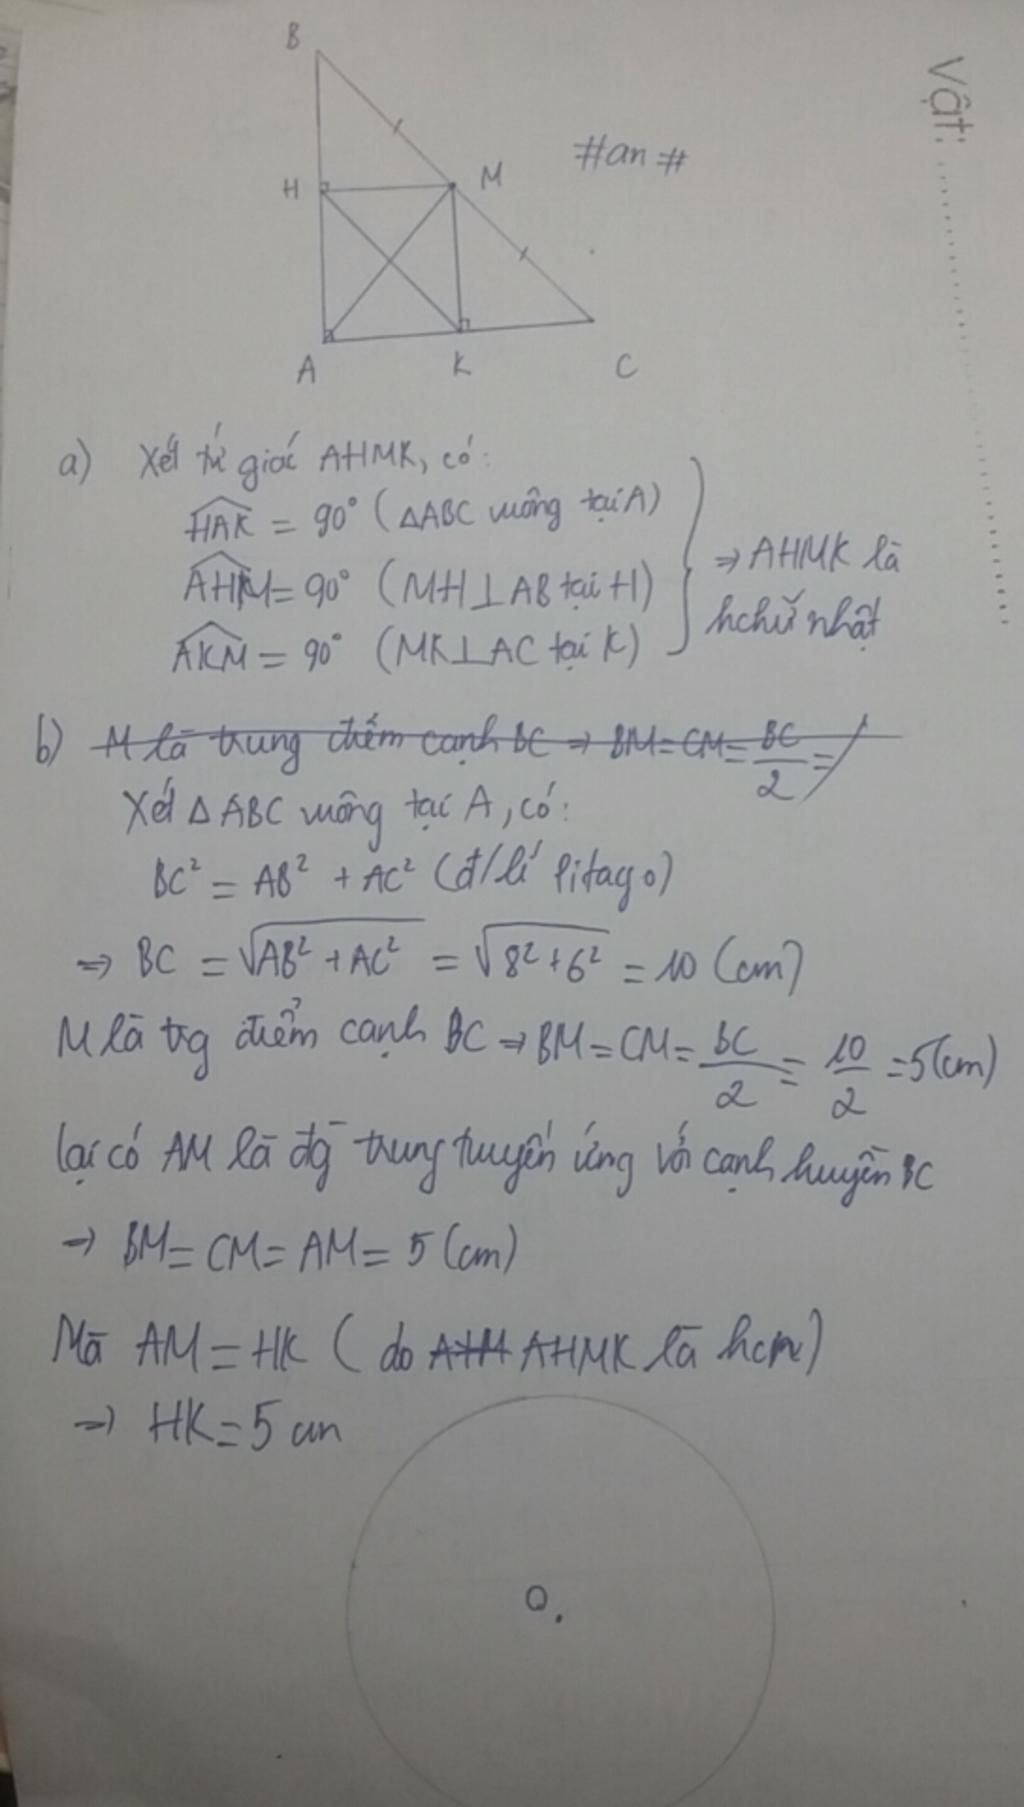 B
Vật: ..........
#an#
H
M
A
K
C
a) Xét tứ giác AHMK, có:
HAK = 90° (ΔABC vuông tại A)
AHM = 90° (MH⊥AB tại H)
⇒ AHMK là
hchữ nhật
AKM = 90° (MK⊥AC tại K)
b) M là trung điểm cạnh BC ⇒ BM = CM = BC/2 =
Xét ΔABC vuông tại A, có:
BC² = AB² + AC² (đ/lí Pitago)
⇒ BC = √AB² + AC² = √8² + 6² = 10 (cm)
M là trg điểm cạnh BC ⇒ BM = CM = BC/2 = 10/2 = 5(cm)
lại có AM là đg trung tuyến ứng với cạnh huyền BC
⇒ BM = CM = AM = 5 (cm)
Mà AM = HK (do AHM AHMK là hcn)
⇒ HK = 5 cm
O